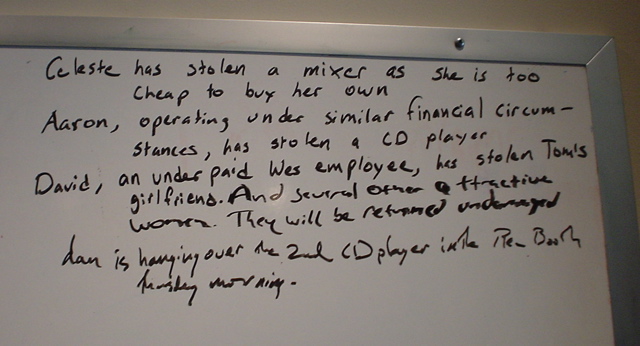 Celeste has stolen a mixer as she is too
cheap to buy her own
Aaron, operating under similar financial circum-
stances, has stolen a CD player
David, an under paid Wes employee, has stolen Tom's
girlfriend. And several other attractive
women. They will be returned undamaged
is hanging over the 2nd CD player in the Booth
morning.